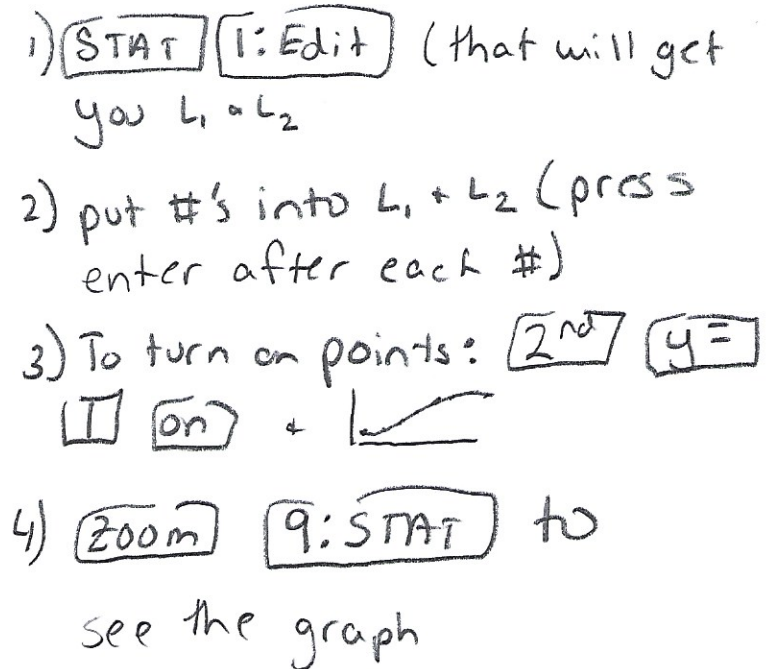 1) STAT 1: Edit (that will get
you L1 & L2
2) put #'s into L1 + L2 (press
enter after each #)
3) To turn on points: 2nd y=
1 on +
4) Zoom 9: STAT to
see the graph